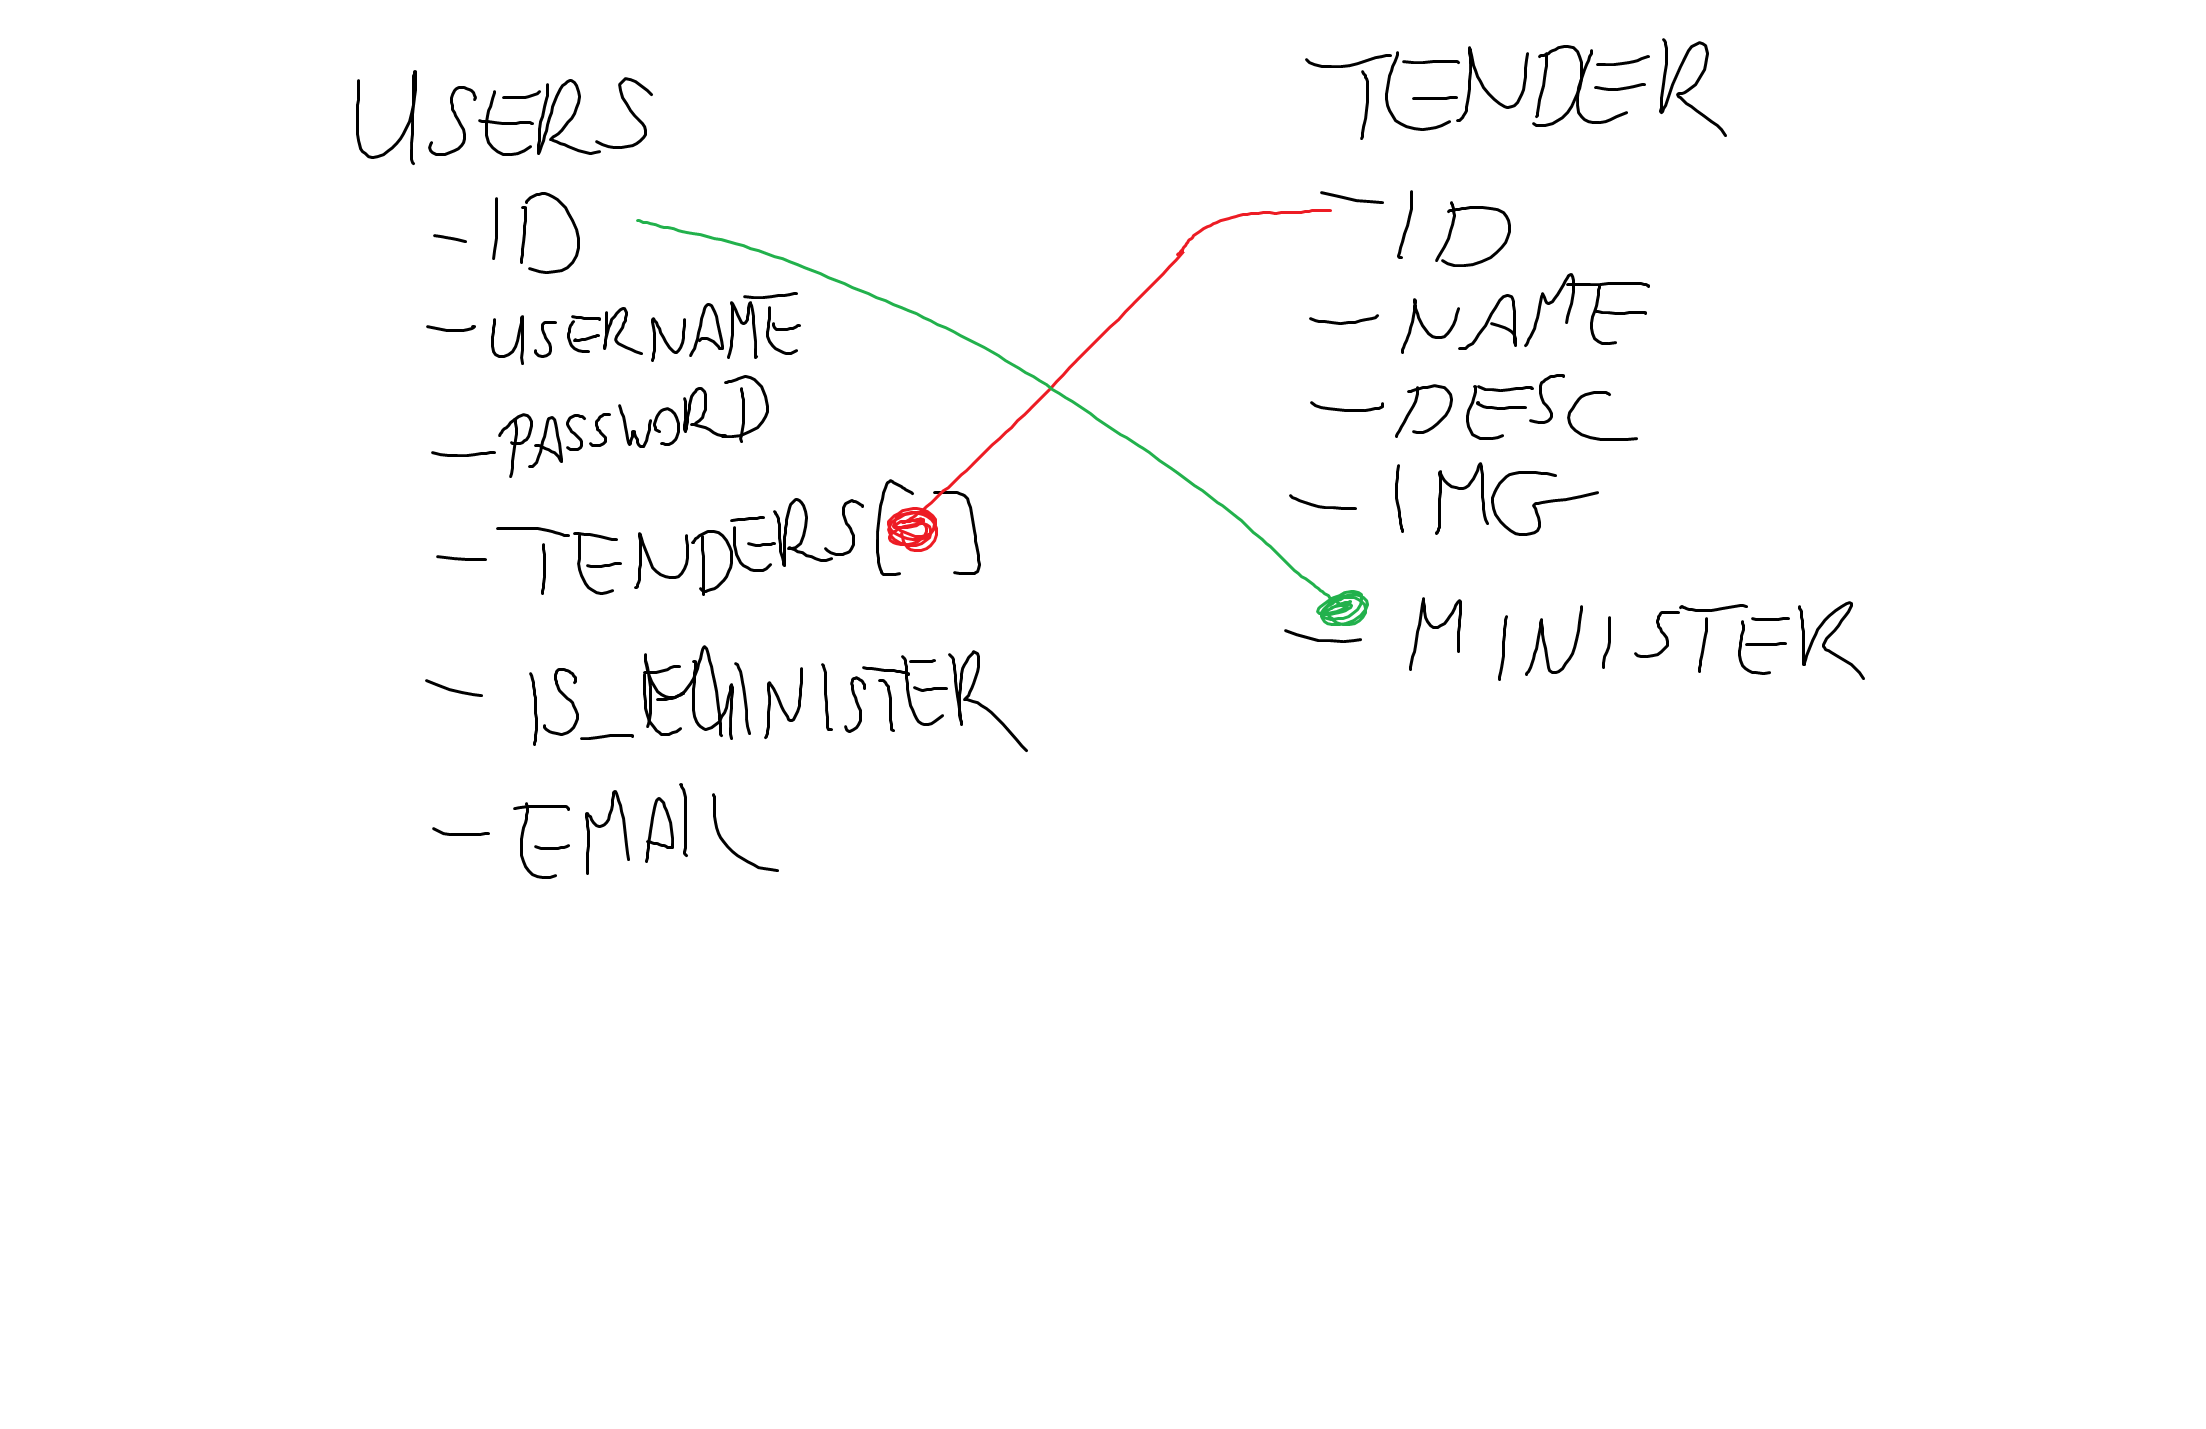 USERS
- ID
- USERNAME
- PASSWORD
- TENDERS[ ]
- IS_MINISTER
- EMAIL
TENDER
- ID
- NAME
- DESC
- IMG
- MINISTER